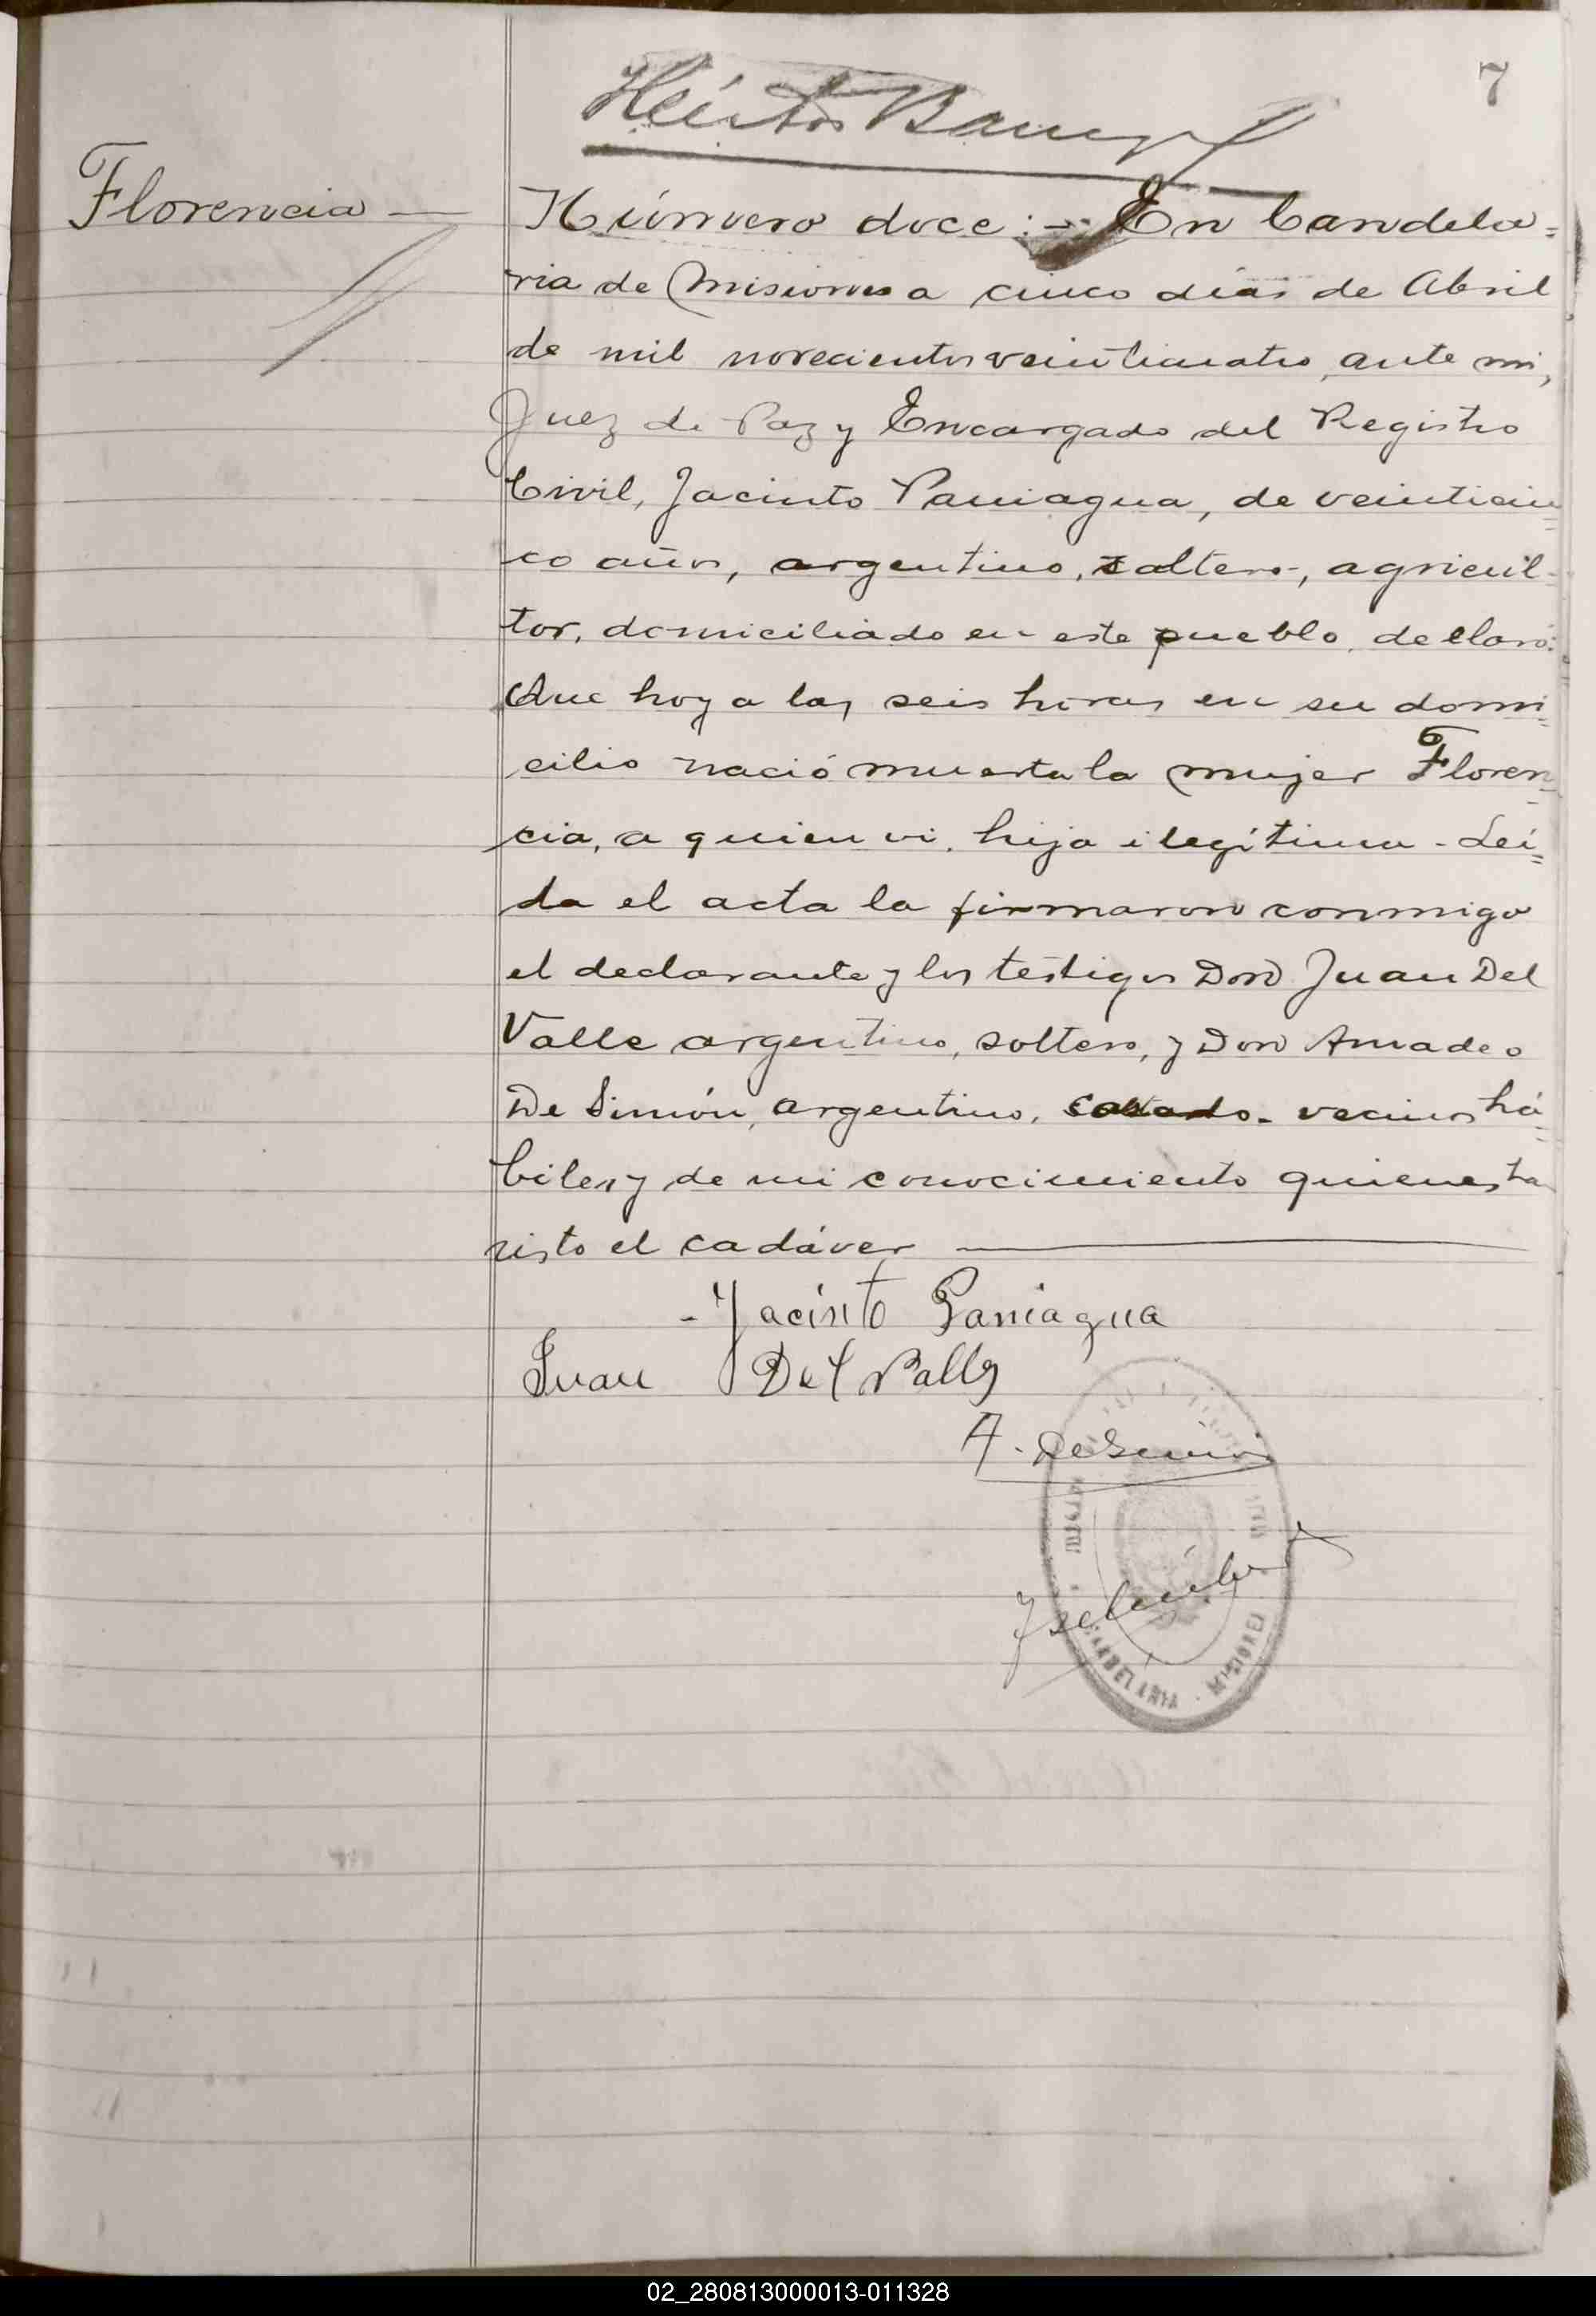 7
Héctor
Florencia —
Número doce:— En Candela=
ria de Misiones a cinco días de Abril
de mil novecientos veinticuatro, ante mi,
Juez de Paz y Encargado del Registro
Civil, Jacinto Paniagua, de veinticin=
co años, argentino, soltero, agricul-
tor, domiciliado en este pueblo, declaró:
Que hoy a las seis horas en su domi=
cilio nació muerta la mujer Floren=
cia, a quien vi, hija ilegítima - Leí=
da el acta la firmaron conmigo
el declarante y los testigos Don Juan Del
Valle argentino, soltero, y Don Amadeo
De Simón, argentino, casado - vecinos há=
biles y de mi conocimiento quienes han
visto el cadáver —
- Jacinto Paniagua
Juan Del Valle
A. DeSimón
CANDELARIA · MISIONES
02_280813000013-011328